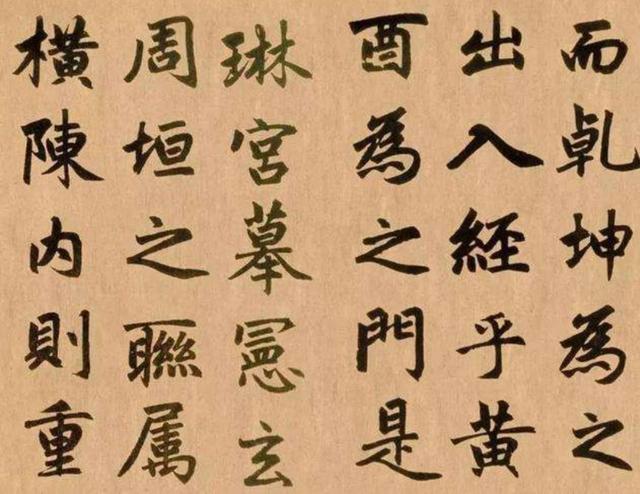 而乹坤為之
出入經乎黄
酉為之門是
琳宮摹憲玄
周垣之聯属
横陳内則重